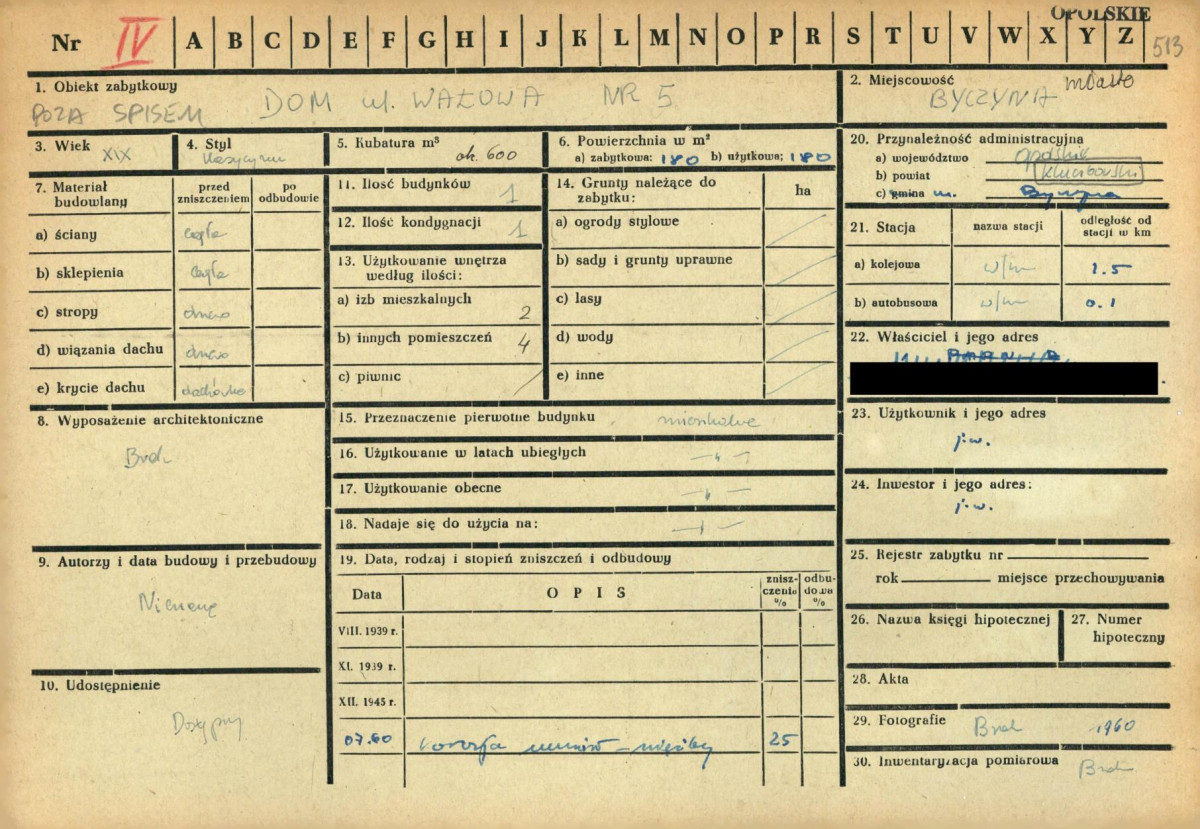 OPOLSKIE
Nr IV A B C D E F G H I J K L M N O P R S T U V W X Y Z 513
1. Obiekt zabytkowy
POZA SPISEM DOM ul. WAŁOWA NR 5
2. Miejscowość
BYCZYNA miasto
3. Wiek XIX
4. Styl
5. Kubatura m³
ok. 600
6. Powierzchnia w m²
a) zabytkowa: 180 b) użytkowa: 180
7. Materiał budowlany
przed zniszczeniem
po odbudowie
a) ściany cegła
b) sklepienia cegła
c) stropy drewno
d) wiązania dachu drewno
e) krycie dachu dachówka
8. Wyposażenie architektoniczne
Brak
9. Autorzy i data budowy i przebudowy
Nieznane
10. Udostępnienie
Dostępny
11. Ilość budynków 1
12. Ilość kondygnacji 1
13. Użytkowanie wnętrza
według ilości:
a) izb mieszkalnych 2
b) innych pomieszczeń 4
c) piwnic /
14. Grunty należące do
zabytku:
ha
a) ogrody stylowe
b) sady i grunty uprawne
c) lasy
d) wody
e) inne
15. Przeznaczenie pierwotne budynku mieszkalne
16. Użytkowanie w latach ubiegłych —„—
17. Użytkowanie obecne —„—
18. Nadaje się do użycia na: —„—
19. Data, rodzaj i stopień zniszczeń i odbudowy
Data
OPIS
zniszczenia %
odbudowa %
VIII. 1939 r.
XI. 1939 r.
XII. 1945 r.
07.60 25
20. Przynależność administracyjna
a) województwo opolskie
b) powiat kluczborski
c) gmina m. Byczyna
21. Stacja
nazwa stacji
odległość od
stacji w km
a) kolejowa w/m 1.5
b) autobusowa w/m 0.1
22. Właściciel i jego adres
23. Użytkownik i jego adres
j.w.
24. Inwestor i jego adres:
j.w.
25. Rejestr zabytku nr
rok miejsce przechowywania
26. Nazwa księgi hipotecznej
27. Numer
hipoteczny
28. Akta
29. Fotografie Brak 1960
30. Inwentaryzacja pomiarowa Brak